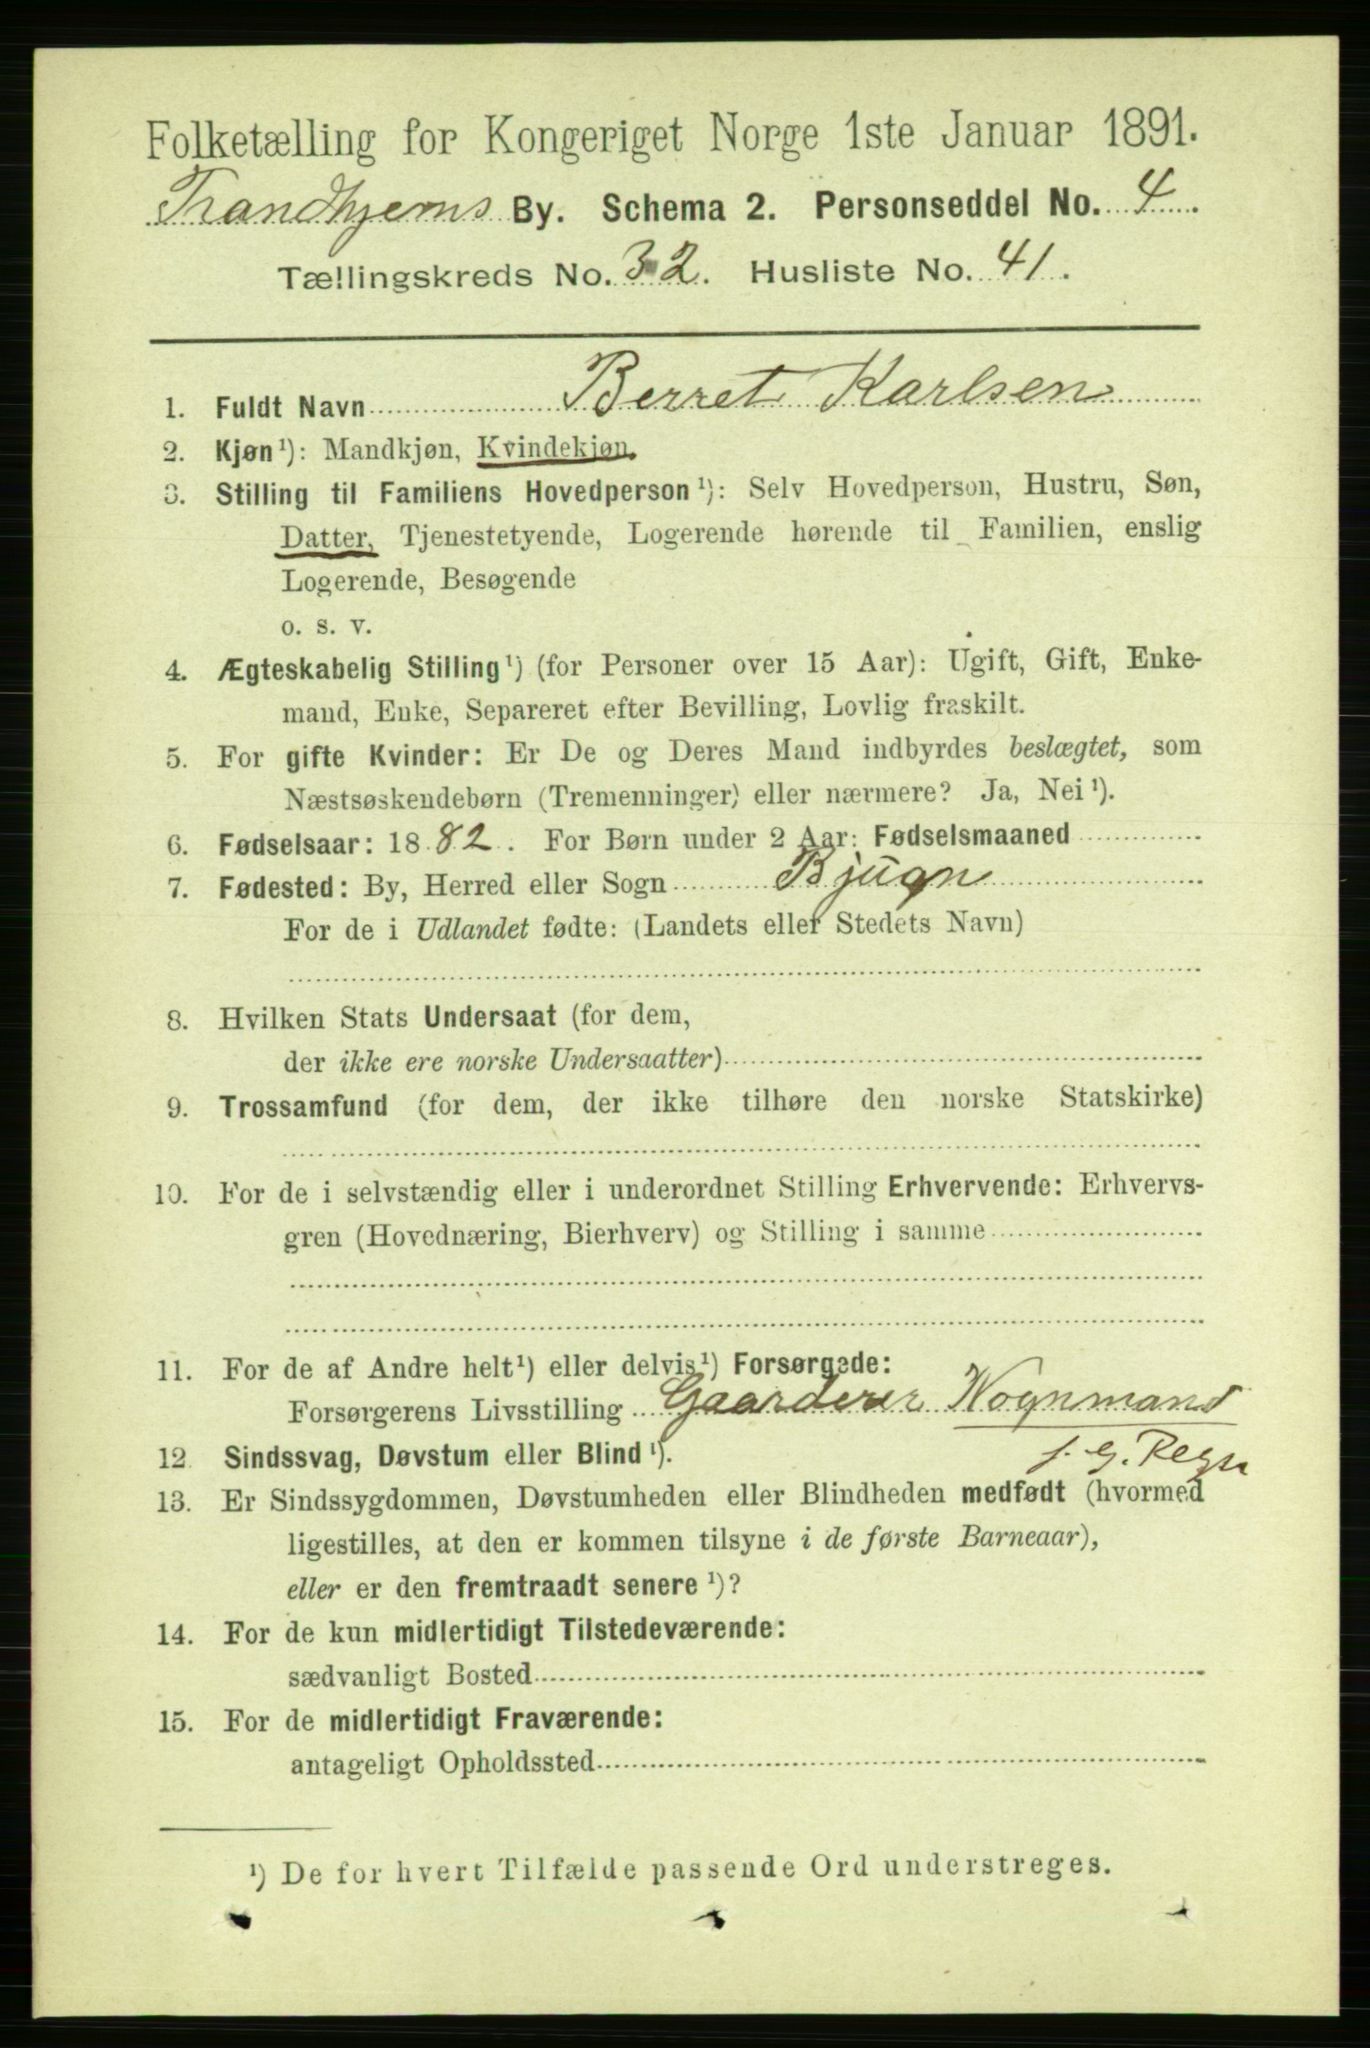 Folketælling for Kongeriget Norge 1ste Januar 1891.
Trandhjems By. Schema 2. Personseddel No. 4
Tællingskreds No. 32. Husliste No. 41.
1. Fuldt Navn Berret Karlsen
2. Kjøn¹): Mandkjøn, Kvindekjøn.
3. Stilling til Familiens Hovedperson¹): Selv Hovedperson, Hustru, Søn,
Datter, Tjenestetyende, Logerende hørende til Familien, enslig
Logerende, Besøgende
o. s. v.
4. Ægteskabelig Stilling¹) (for Personer over 15 Aar): Ugift, Gift, Enke-
mand, Enke, Separeret efter Bevilling, Lovlig fraskilt.
5. For gifte Kvinder: Er De og Deres Mand indbyrdes beslægtet, som
Næstsøskendebørn (Tremenninger) eller nærmere? Ja, Nei¹).
6. Fødselsaar: 1882. For Børn under 2 Aar: Fødselsmaaned
7. Fødested: By, Herred eller Sogn Bjugn
For de i Udlandet fødte: (Landets eller Stedets Navn)
8. Hvilken Stats Undersaat (for dem,
der ikke ere norske Undersaatter)
9. Trossamfund (for dem, der ikke tilhøre den norske Statskirke)
10. For de i selvstændig eller i underordnet Stilling Erhvervende: Erhvervs-
gren (Hovednæring, Bierhverv) og Stilling i samme
11. For de af Andre helt¹) eller delvis¹) Forsørgede:
Forsørgerens Livsstilling Gaarderer Vognmand
12. Sindssvag, Døvstum eller Blind¹).
13. Er Sindssygdommen, Døvstumheden eller Blindheden medfødt (hvormed
ligestilles, at den er kommen tilsyne i de første Barneaar),
eller er den fremtraadt senere¹)?
14. For de kun midlertidigt Tilstedeværende:
sædvanligt Bosted
15. For de midlertidigt Fraværende:
antageligt Opholdssted
¹) De for hvert Tilfælde passende Ord understreges.